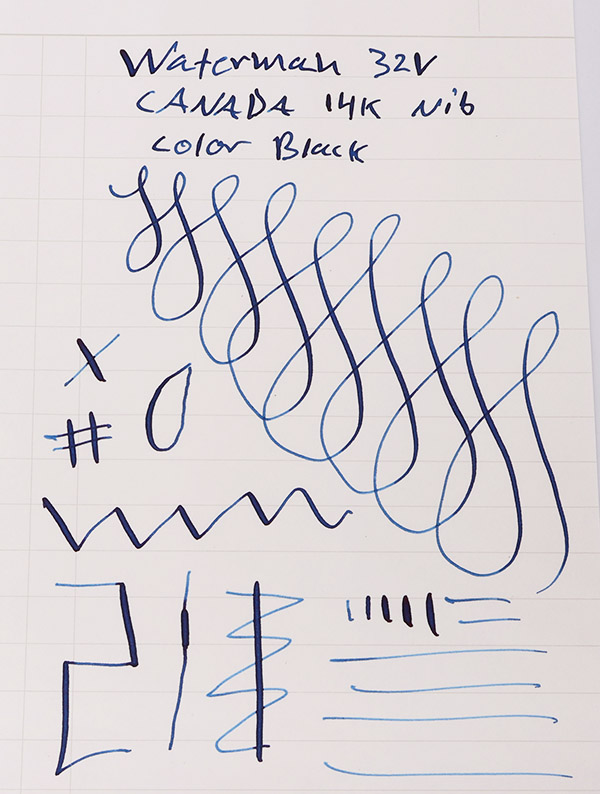 Waterman 32V
CANADA 14K Nib
color Black